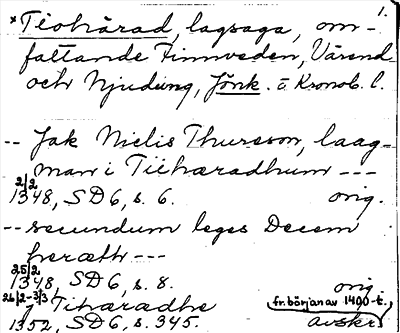 1.
*Tiohärad, lagsaga, om-
fattande Finnveden, Värend
och Njudung, Jönk. o. Kronob. l.
-- Jak Nielis Thuresson, laag-
man i Tiihæradhum ---
2/2
1348, SD 6, s. 6. orig.
-- secundum leges Decem
heræth ---
25/2
1348, SD 6, s. 8. orig.
26/2-3/3 j Tiharædhe fr. början av 1400-t.
1352, SD 6, s. 345. avskr.